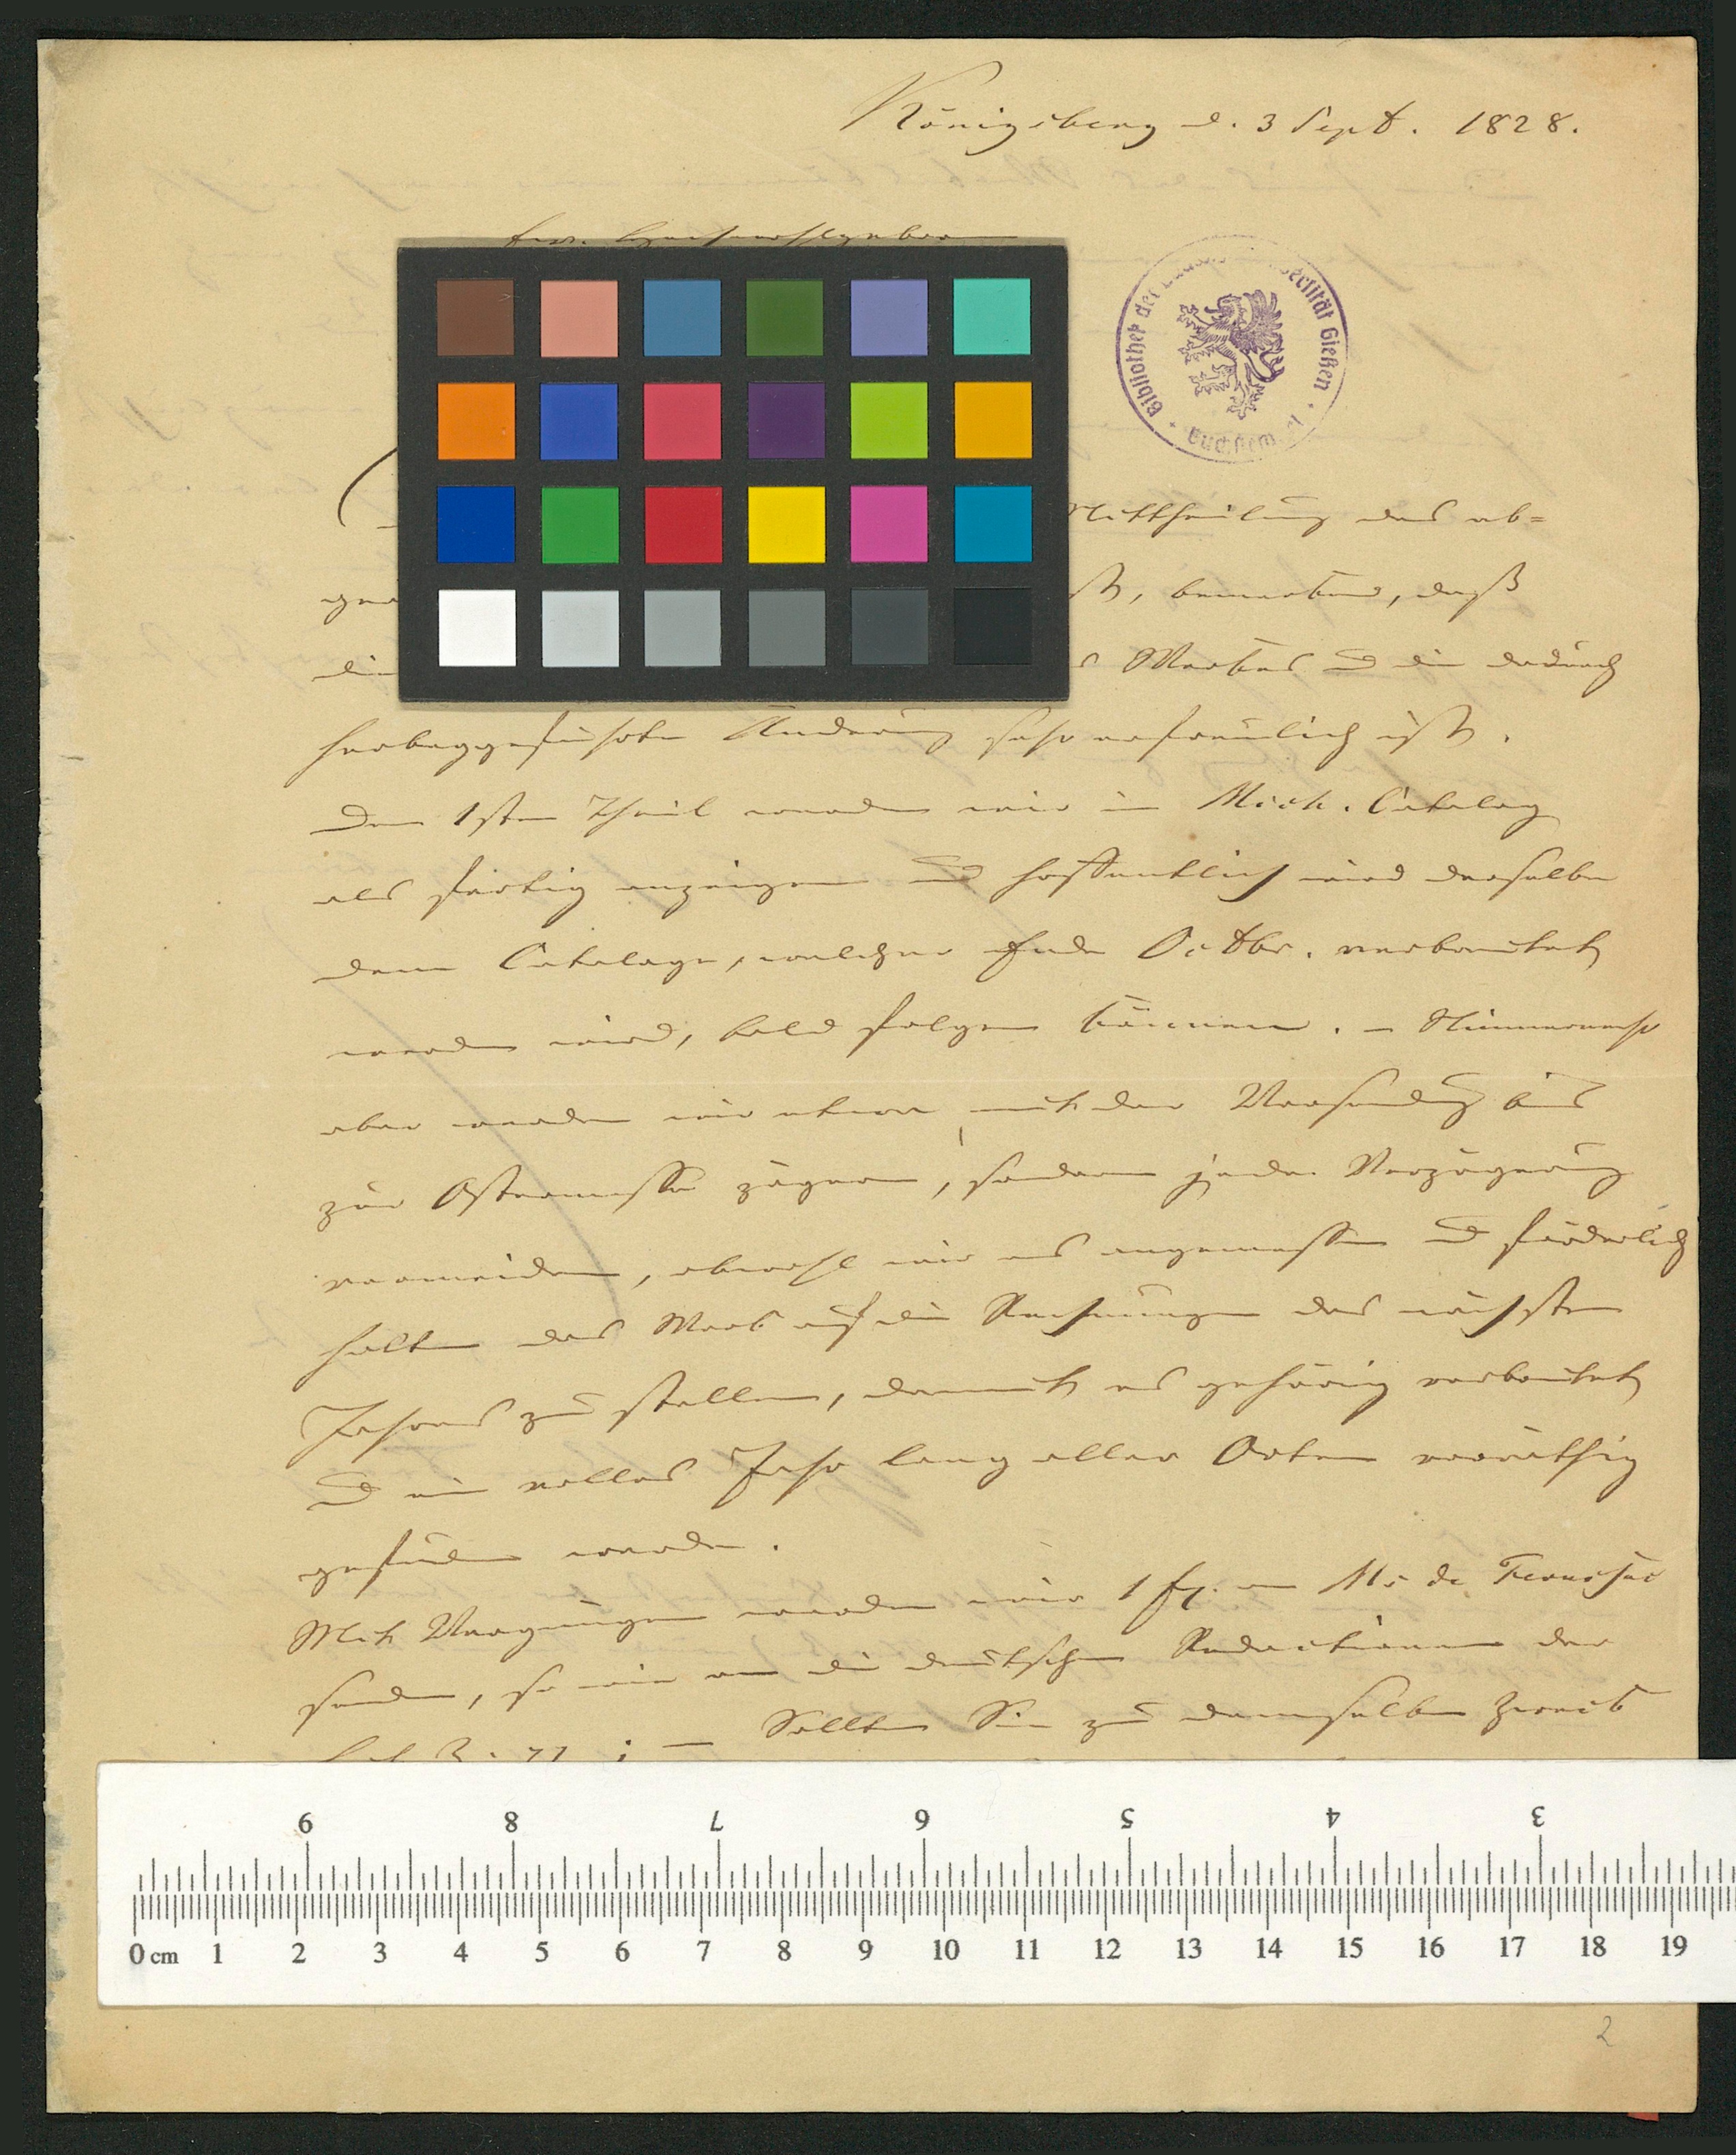 Königsberg d. 3 Sept. 1828.
Ew. Hochwohlgeboren
Bibliothek der Universität Gießen
Mittheilung des ab=
ge
st, bemerkend, daß
die
s Werkes und die dadurch
herbeygeführte Änderung sehr erfreulich ist.
Den 1sten Theil werden wir im Mich. Catalog
als fertig anzeigen und hoffentlich wird derselbe
dem Cataloge, welcher Ende Octbr. verbreitet
werden wird, bald folgen können. – Nimmermehr
aber werden wir etwa mit der Versendung bis
zur Ostermesse zögern, sondern jede Verzögerung
vermeiden, obwohl wir es angemessen und förderlich
halten das Werk auf die Rechnungen des nächsten
Jahres zu stellen, damit es gehörig verbreitet
und ein volles Jahr lang aller Orten vorräthig
gefunden werde.
Mit Vergnügen werden wir 1 Ex. an Mr de Ferussac
senden, so wie an die deutschen Redactionen der
Sollten Sie zu demselben Zweck
9 8 7 6 5 4 3
0 cm 1 2 3 4 5 6 7 8 9 10 11 12 13 14 15 16 17 18 19
2